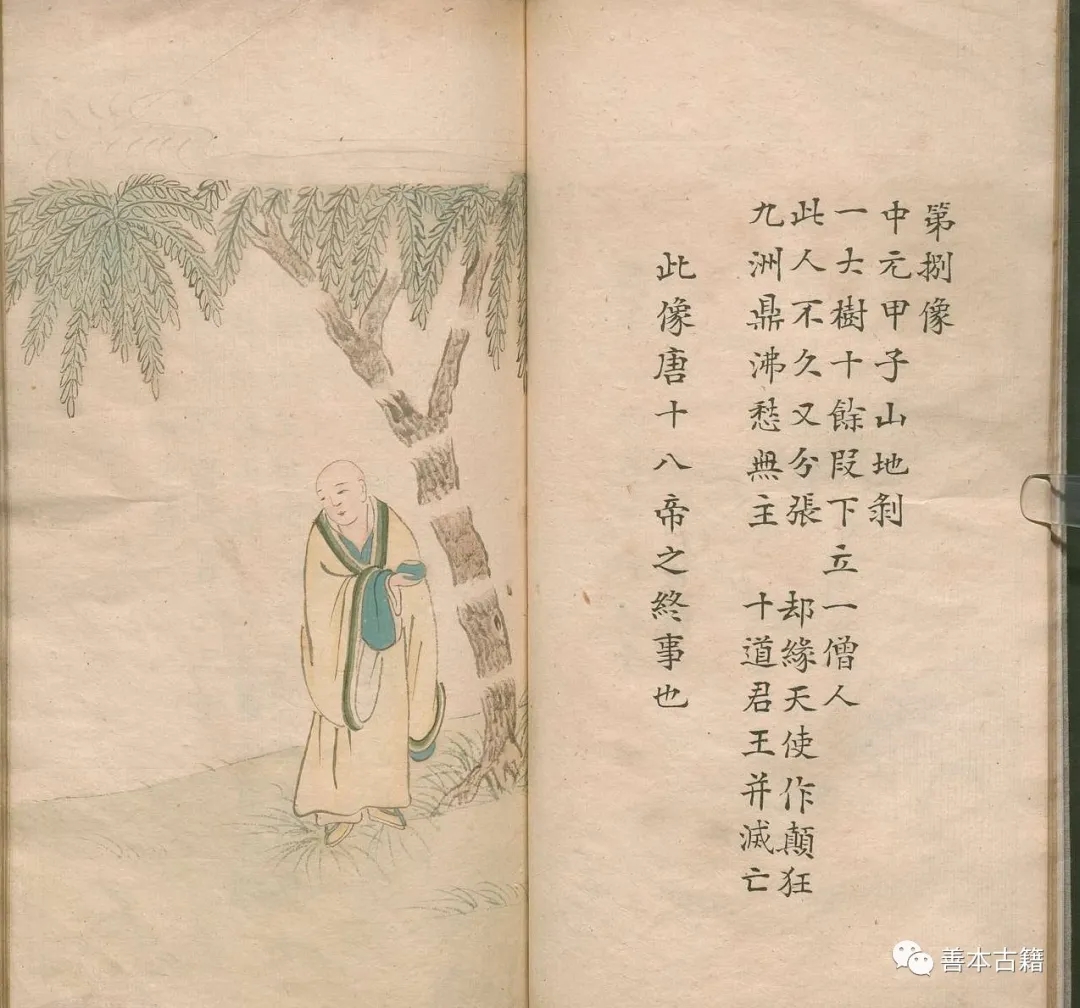 第捌像
中元甲子山地剥
一大樹十餘段下立一僧人
此人不久又分張 却緣天使作顛狂
九洲鼎沸愁無主 十道君王并滅亡
此像唐十八帝之終事也
善本古籍